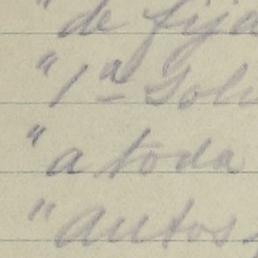 " de fija
" 1ª Solu
" a toda
" autos